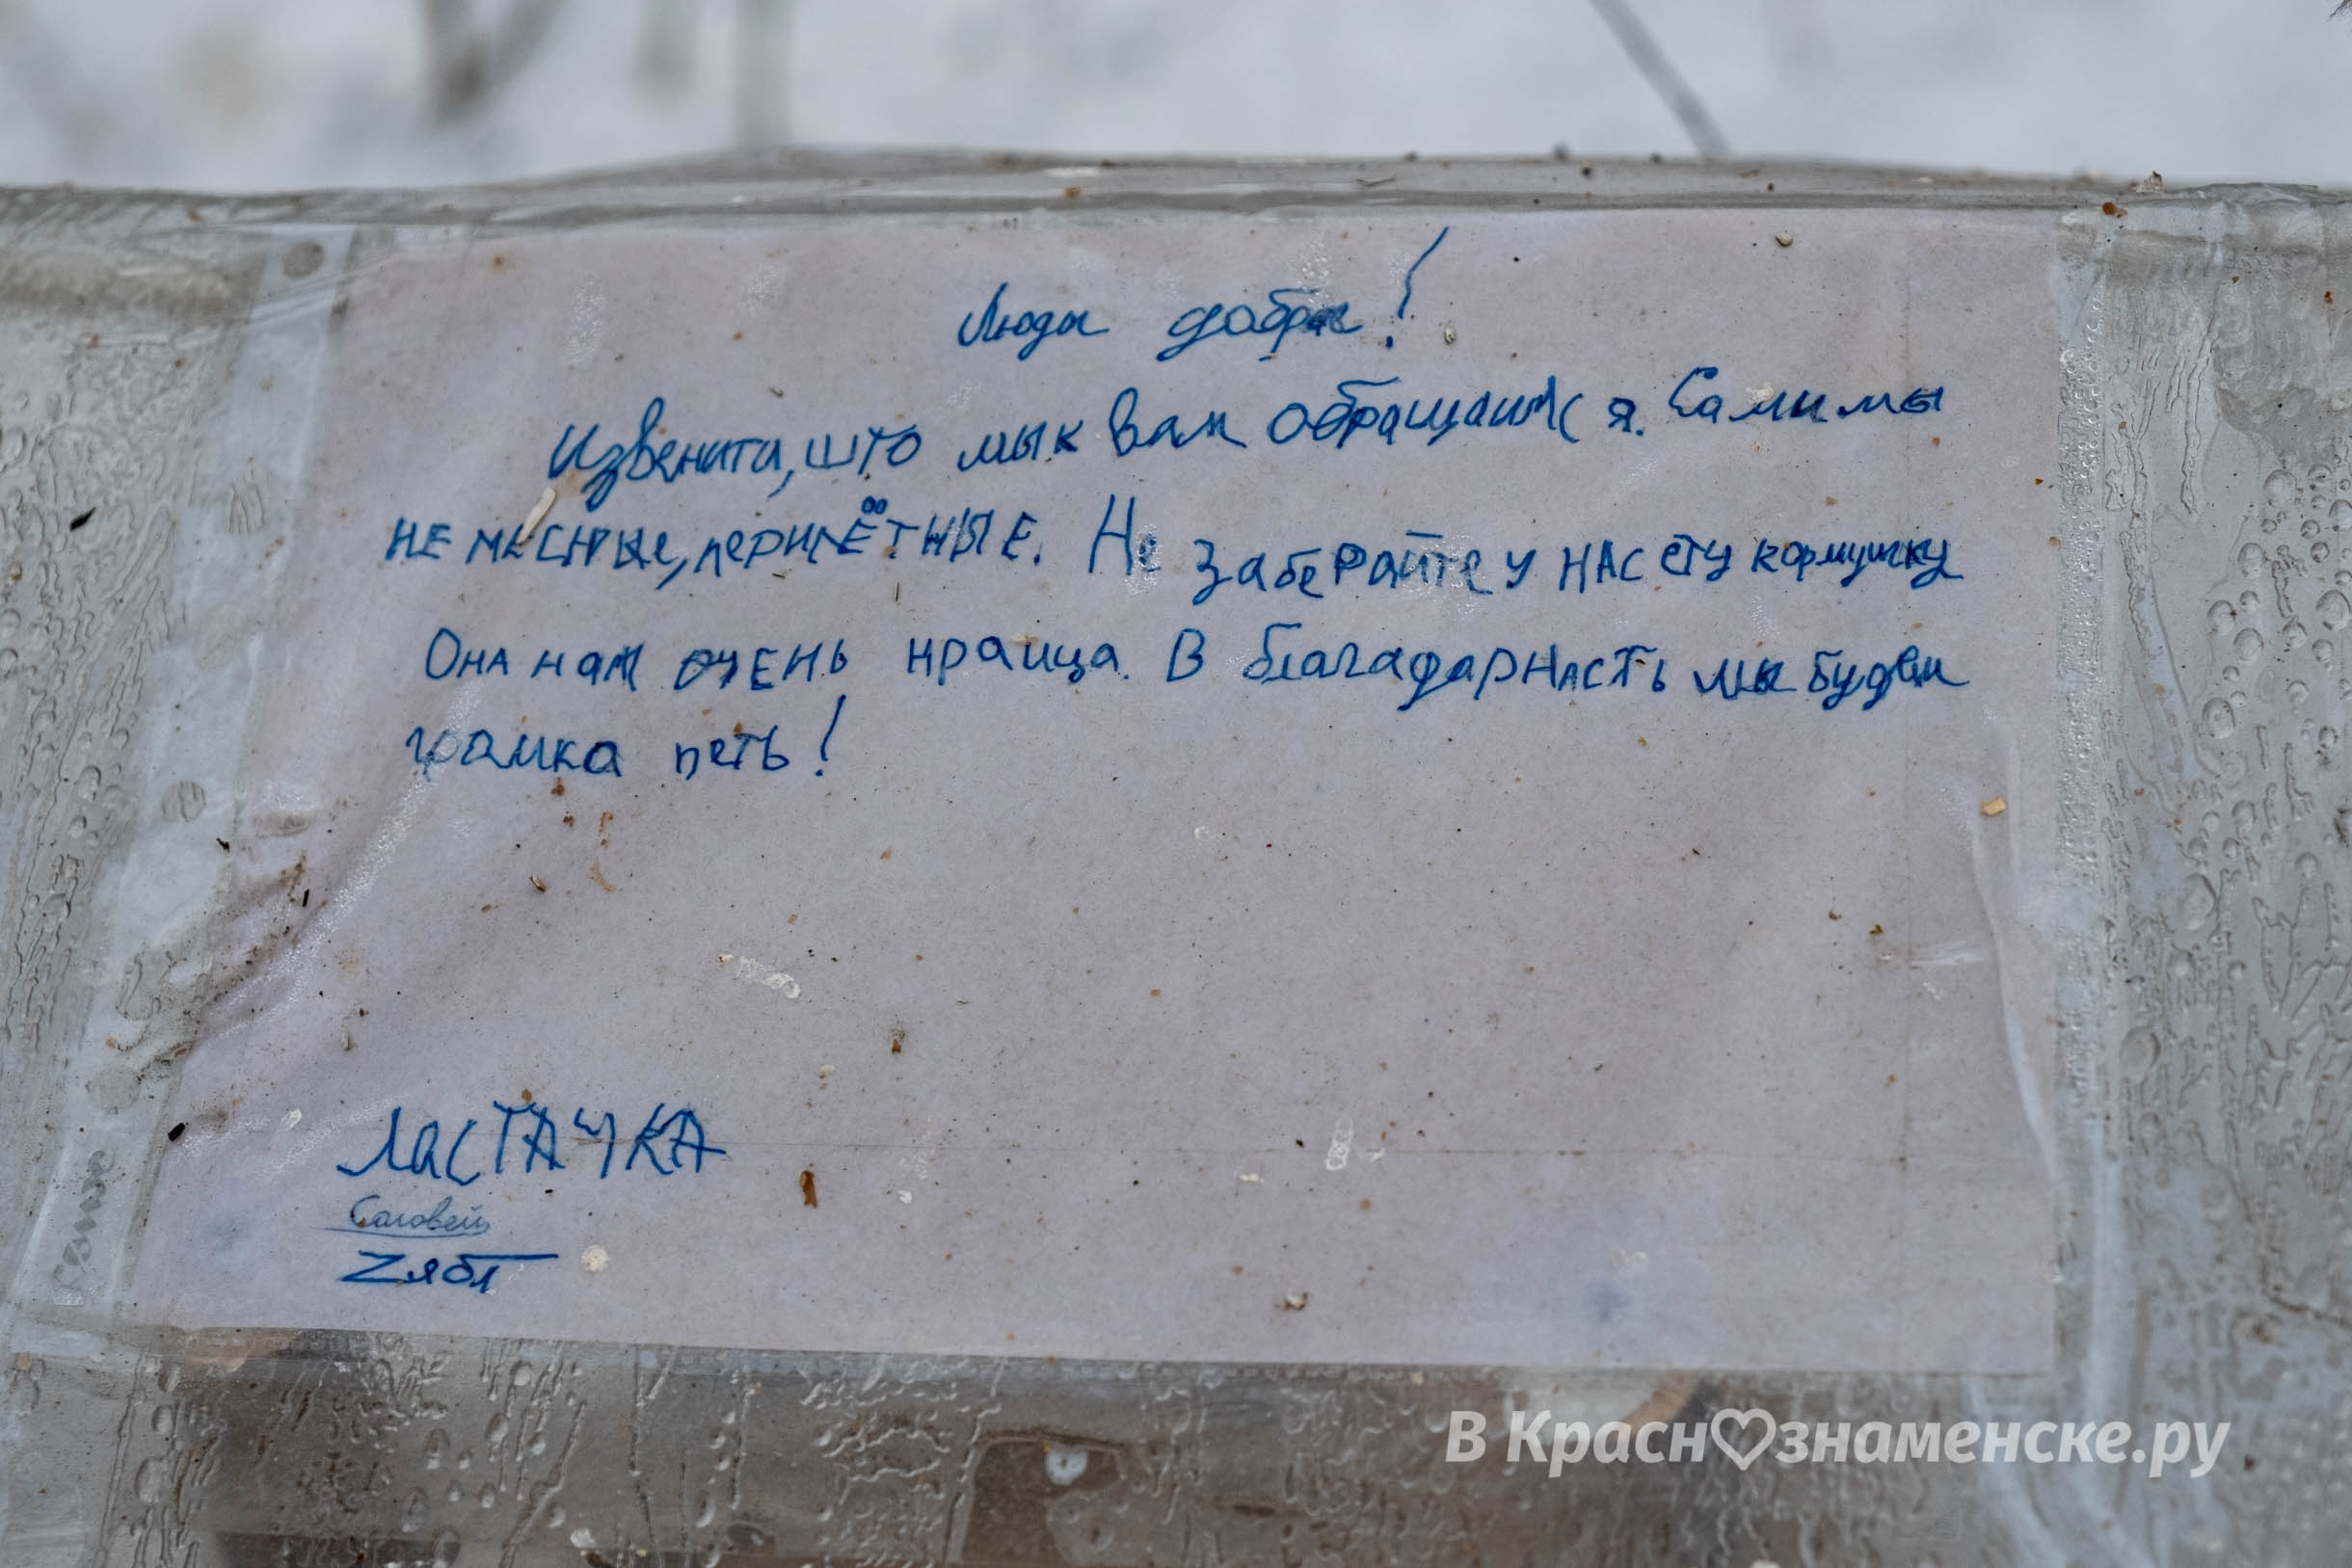 Люды добры!
Извенита, што мы к вам обращаимся. Сами мы
не месные, перилётные. Не заберайте у нас ету кормушку
Она нам очень нраица. В благадарнасть мы будем
грамка петь!
Ластачка
Саловей
Zябл
В Красн♡знаменске.ру